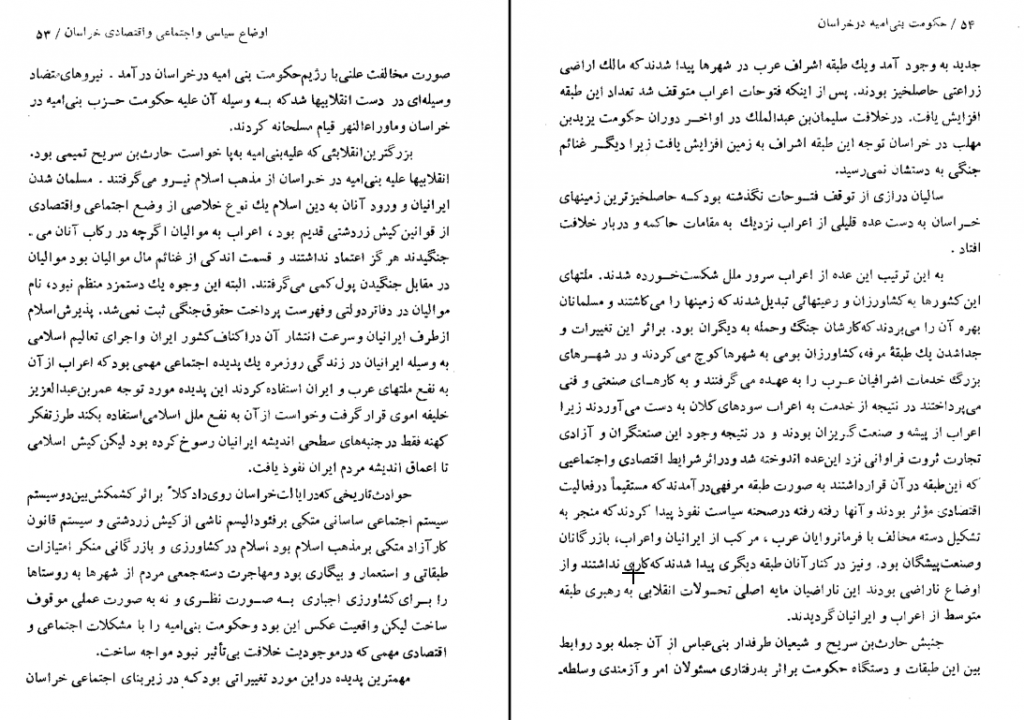 اوضاع سیاسی واجتماعی واقتصادی خراسان / ۵۳
صورت مخالفت علنی با رژیم حکومت بنی امیه در خراسان در آمد . نیروهای متضاد
وسیله‌ای در دست انقلابیها شد که بـه وسیله آن علیه حکومت حـزب بنی‌امیه در
خراسان وماوراءالنهر قیام مسلحانه کردند.
بزرگترین انقلابی که علیه بنی‌امیه به‌پا خواست حارث‌بن سریج تمیمی بود.
انقلابیها علیه بنی‌امیه در خـراسان از مذهب اسلام نیـرو می‌گرفتند . مسلمان شدن
ایرانیان و ورود آنان به دین اسلام یك نوع خلاصی از وضع اجتماعی واقتصادی
از قوانین کیش زردشتی قدیم بود ، اعراب به موالیان اگرچه در رکاب آنان می ـ
جنگیدند هرگز اعتماد نداشتند و قسمت اندکی از غنائم مال موالیان بود موالیان
در مقابل جنگیدن پول کمی می‌گرفتند. البته این وجوه یك دستمزد منظم نبود، نام
موالیان در دفاتر دولتی وفهرست پرداخت حقوق جنگی ثبت نمی‌شد. پذیرش اسلام
ازطرف ایرانیان وسرعت انتشار آن در اکناف کشور ایران واجرای تعالیم اسلامی
به وسیله ایرانیان در زندگی روزمره یك پدیده اجتماعی مهمی بود که اعراب از آن
به نفع ملتهای عرب و ایران استفاده کردند این پدیده مورد توجه عمربن عبدالعزیز
خلیفه اموی قرار گرفت وخواست از آن به نفع ملل اسلامی استفاده بکند طرزتفکر
کهنه فقط در جنبه‌های سطحی اندیشه ایرانیان رسوخ کرده بود لیکن کیش اسلامی
تا اعماق اندیشه مردم ایران نفوذ یافت.
حوادث تاریخی که در ایالت خراسان روی داد کلاً براثر کشمکش بین دوسیستم
سیستم اجتماعی ساسانی متکی برفئودالیسم ناشی از کیش زردشتی و سیستم قانون
کار آزاد متکی برمذهب اسلام بود اسلام در کشاورزی و بازرگانی منکر امتیازات
طبقاتی و استعمار و بیگاری بود ومهاجرت دسته‌جمعی مردم از شهرها به روستاها
را بـرای کشاورزی اجباری بـه صـورت نظـری و نه به صورت عملی موقوف
ساخت لیکن واقعیت عکس این بود وحکومت بنی‌امیه را با مشکلات اجتماعی و
اقتصادی مهمی که در موجودیت خلافت بی‌تأثیر نبود مواجه ساخت.
مهمترین پدیده در این مورد تغییراتی بود کـه در زیربنای اجتماعی خراسان
۵۴ / حکومت بنی‌امیه در خراسان
جدید به وجود آمد ویك طبقه اشراف عرب در شهرها پیدا شدند که مالك اراضی
زراعتی حاصلخیز بودند. پس از اینکه فتوحات اعراب متوقف شد تعداد این طبقه
افزایش یافت. درخلافت سلیمان‌بن عبدالملك در اواخـر دوران حکومت یزیدبن
مهلب در خراسان توجه این طبقه اشراف به زمین افزایش یافت زیرا دیگـر غنائم
جنگی به دستشان نمی‌رسید.
سالیان درازی از توقف فتـوحات نگذشته بود کـه حاصلخیزترین زمینهای
خـراسان به دست عده قلیلی از اعراب نزدیك به مقامات حاکمه و دربار خلافت
افتاد .
به این ترتیب این عده از اعراب سرور ملل شکست‌خـورده شدند. ملتهای
این کشورها به کشاورزان و رعیتهائی تبدیل شدند که زمینها را می‌کاشتند و مسلمانان
بهره آن را می‌بردند که کارشان جنگ وحمله به دیگران بود. براثر این تغییرات و
جداشدن یك طبقهٔ مرفه، کشاورزان بومی به شهرها کوچ می‌کردند و در شهـرهای
بزرگ خدمات اشرافیان عـرب را به عهـده می‌گرفتند و به کارهـای صنعتی و فنی
می‌پرداختند در نتیجه از خدمت به اعراب سودهای کلان به دست می‌آوردند زیرا
اعراب از پیشه و صنعت گریزان بودند و در نتیجه وجود این صنعتگران و آزادی
تجارت ثروت فراوانی نزد این عده اندوخته شد ودراثر شرایط اقتصادی واجتماعیی
که این طبقه در آن قرارداشتند به صورت طبقه مرفهی در آمدند که مستقیماً در فعالیت
اقتصادی مؤثر بودند و آنها رفته رفته در صحنه سیاست نفوذ پیدا کردند که منجر به
تشکیل دسته مخالف با فرمانروایان عرب ، مرکب از ایرانیان واعراب، بازرگانان
وصنعت‌پیشگان بود. ونیز در کنار آنان طبقه دیگری پیدا شدند که کاری نداشتند و از
اوضاع ناراضی بودند این ناراضیان مایه اصلی تحـولات انقلابی به رهبری طبقه
متوسط از اعراب و ایرانیان گردیدند.
جنبش حارث‌بن سریج و شیعیان طرفدار بنی‌عباس از آن جمله بود روابط
بین این طبقات و دستگاه حکومت براثر بدرفتاری مسئولان امر و آزمندی وسلطه‌ـ